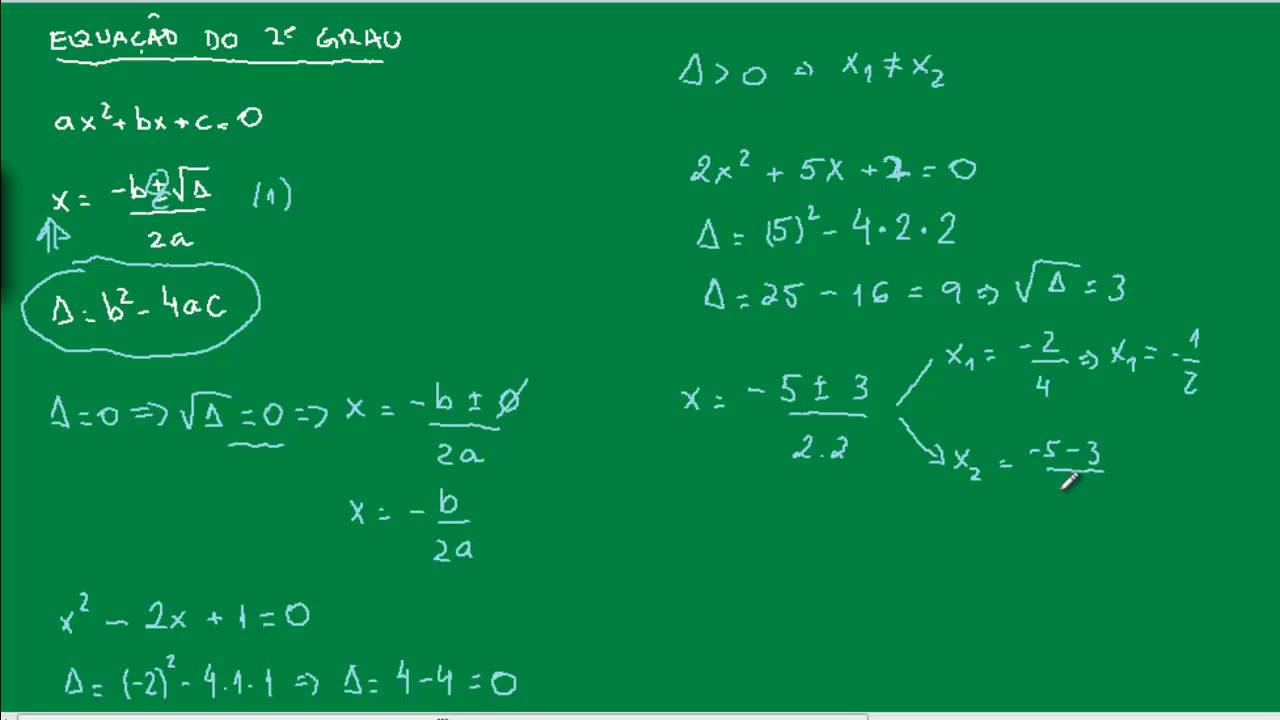 EQUAÇÃO DO 2º GRAU
ax² + bx + c = 0
x = (-b ± √Δ)/2a (1)
Δ = b² - 4ac
Δ = 0 => √Δ = 0 => x = (-b ± 0)/2a
x = - b/2a
x² - 2x + 1 = 0
Δ = (-2)² - 4.1.1 => Δ = 4 - 4 = 0
Δ > 0 => x₁ ≠ x₂
2x² + 5x + 2 = 0
Δ = (5)² - 4·2·2
Δ = 25 - 16 = 9 => √Δ = 3
x = (-5 ± 3)/2.2
x₁ = -2/4 => x₁ = -1/2
x₂ = (-5-3)/